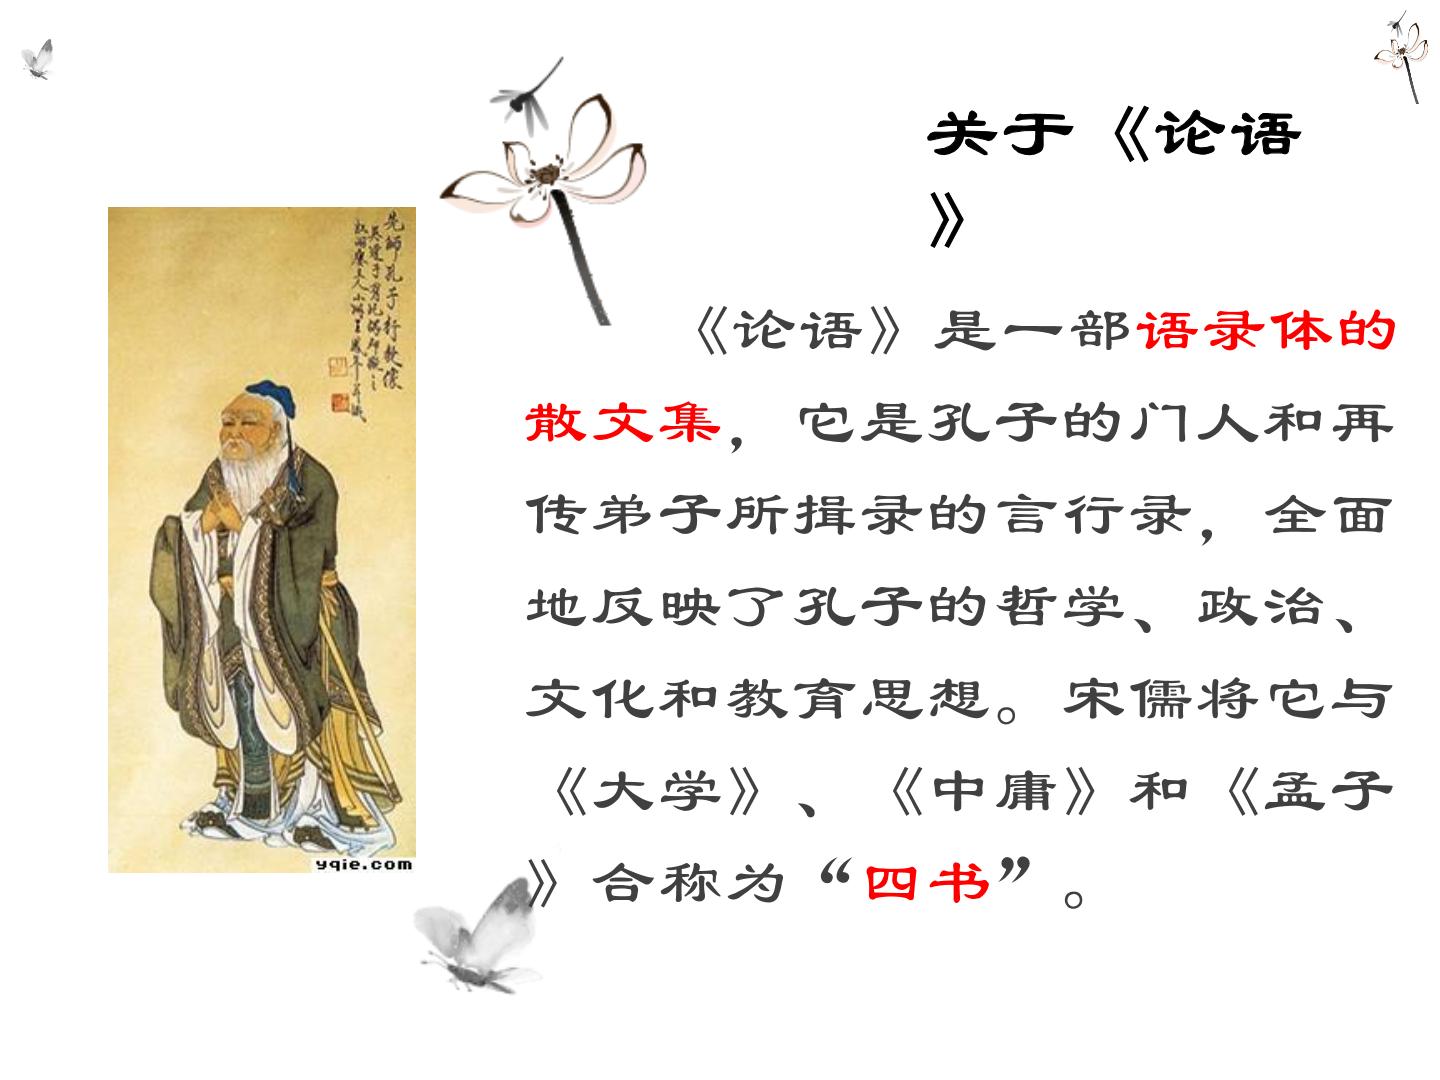 关于《论语
》
《论语》是一部语录体的
散文集，它是孔子的门人和再
传弟子所揖录的言行录，全面
地反映了孔子的哲学、政治、
文化和教育思想。宋儒将它与
《大学》、《中庸》和《孟子
》合称为“四书”。
先師孔子行教像
yqie.com